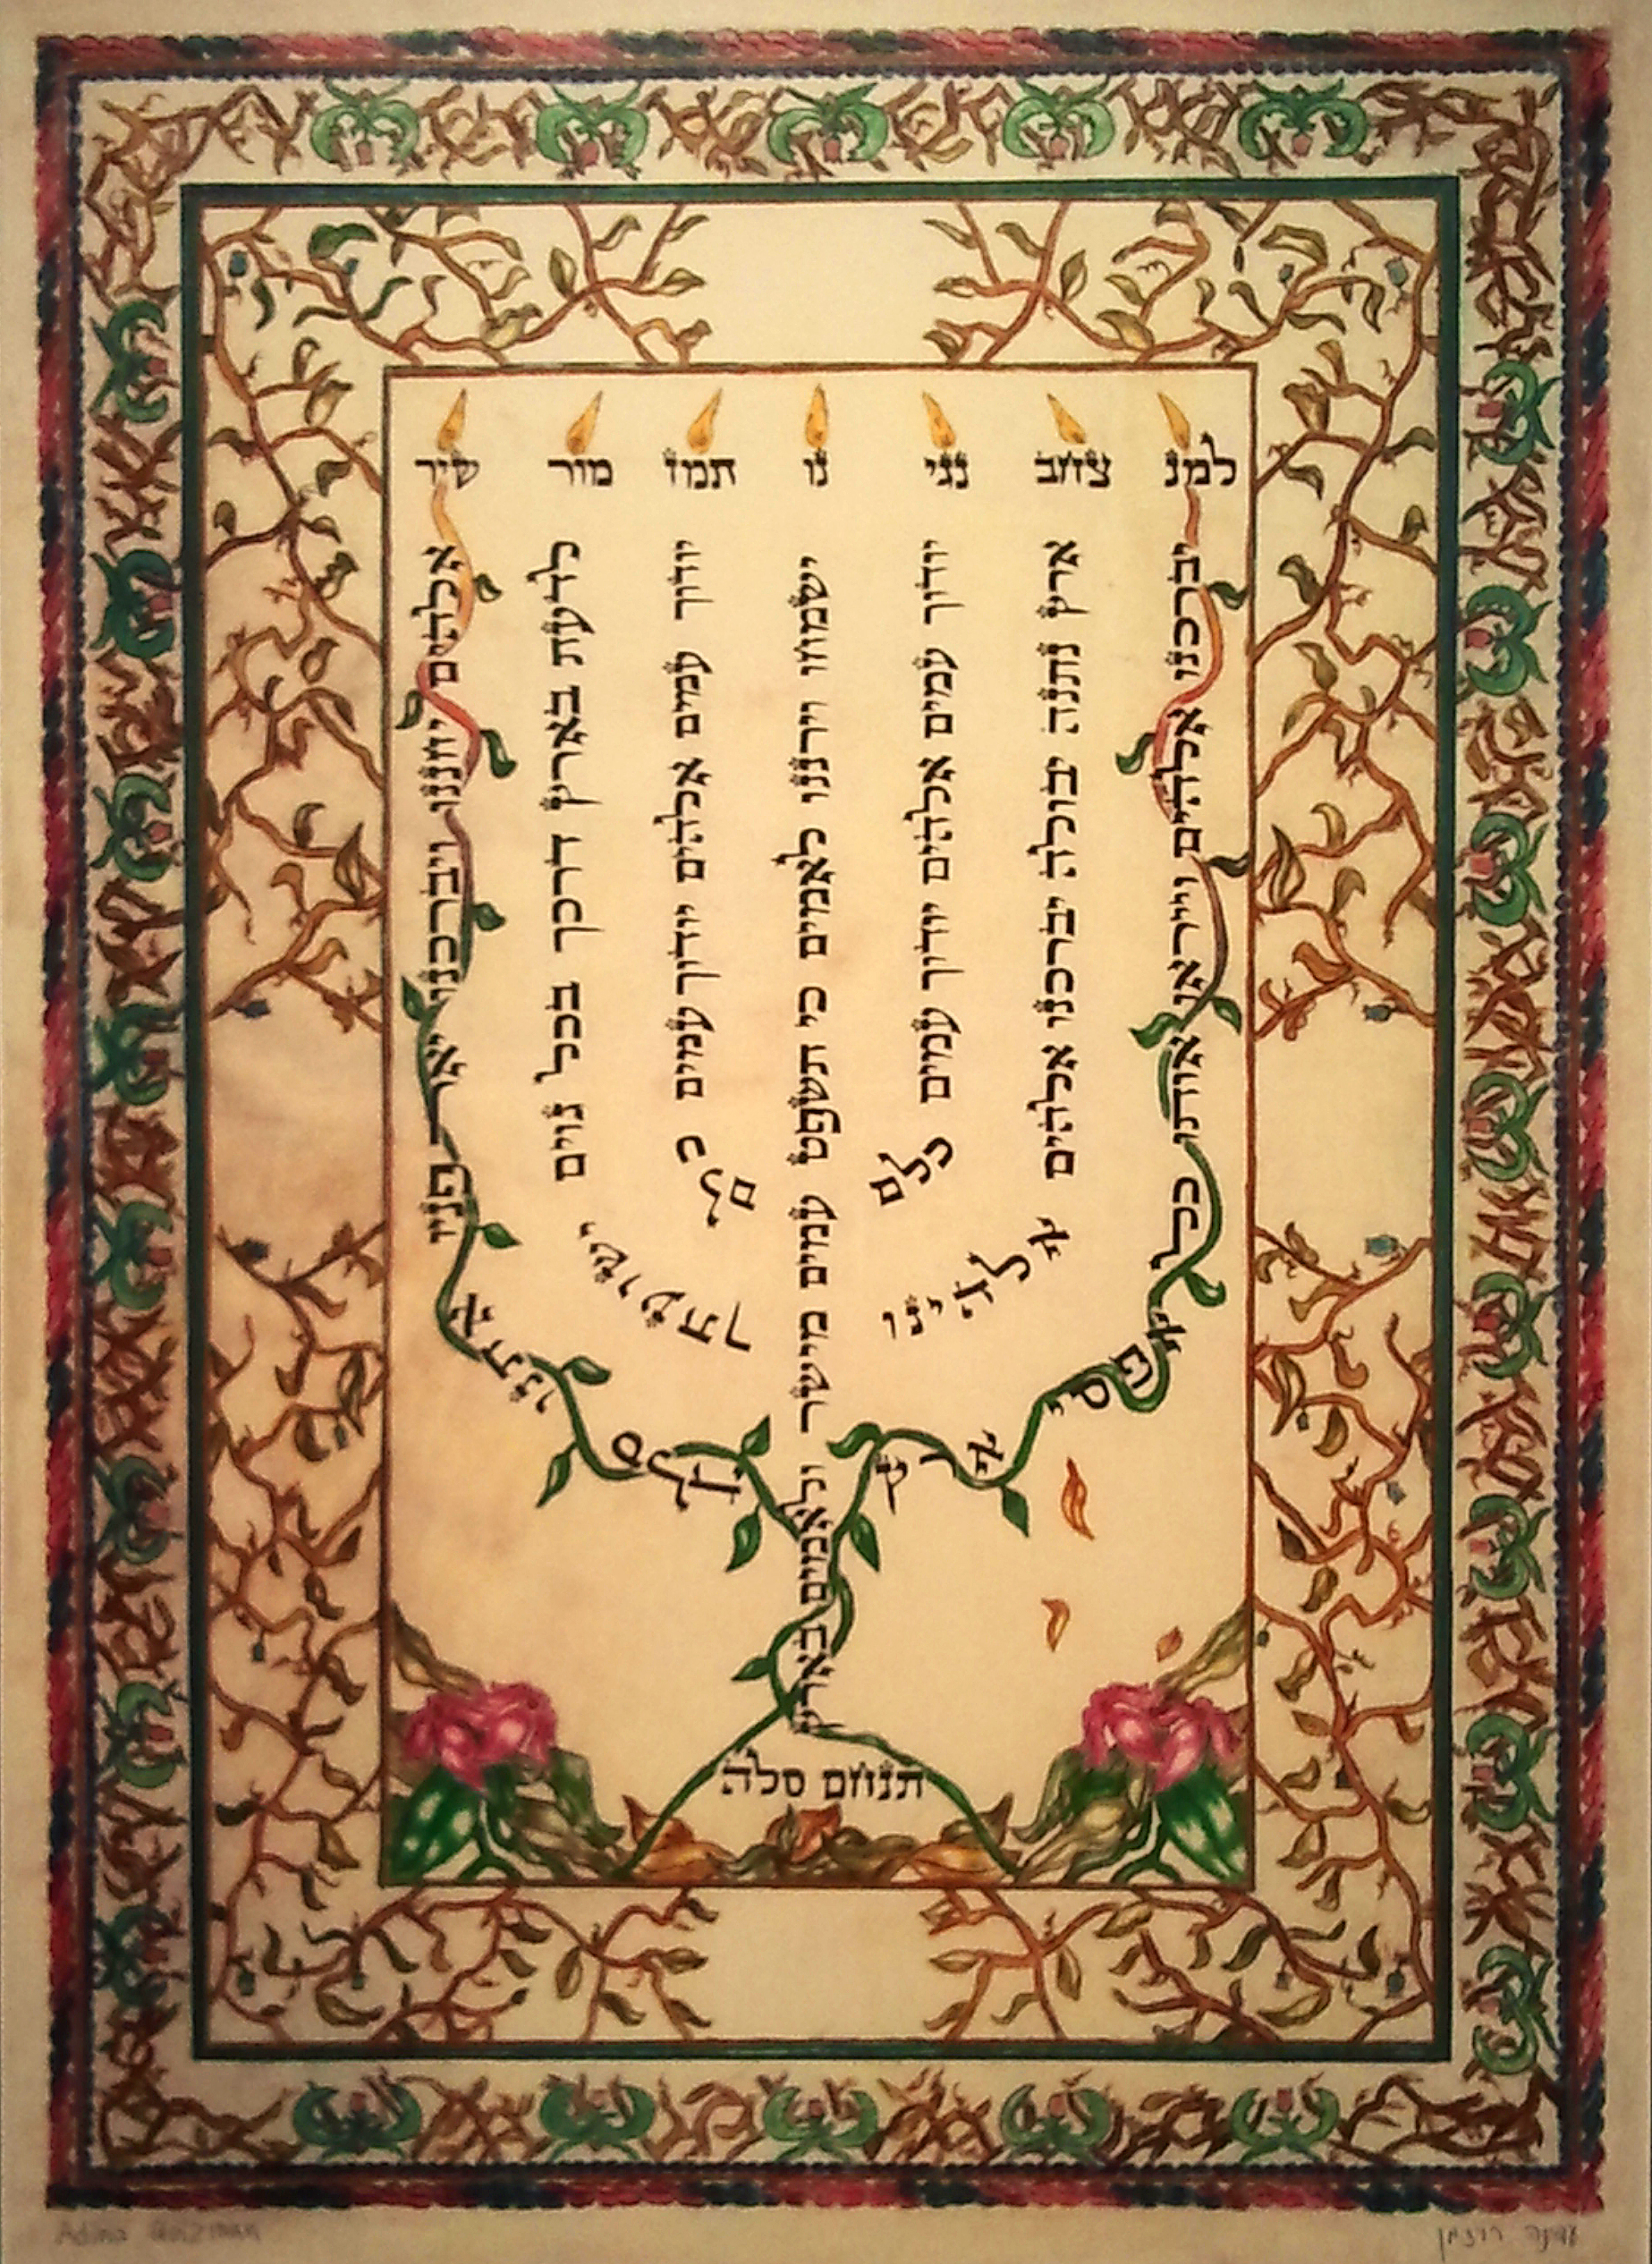 למנ צחב נגי נו תמז מור שיר
אלהים יחננו ויברכנו יאר פניו אתנו סלה
לדעת בארץ דרכך בכל גוים ישועתך
יודוך עמים אלהים יודוך עמים כלם
ישמחו וירננו לאמים כי תשפט עמים מישר ולאמים בארץ
תנחם סלה
יודוך עמים אלהים יודוך עמים כלם
ארץ נתנה יבולה יברכנו אלהים אלהינו
יברכנו אלהים וייראו אותו כל אפסי ארץ
Adina